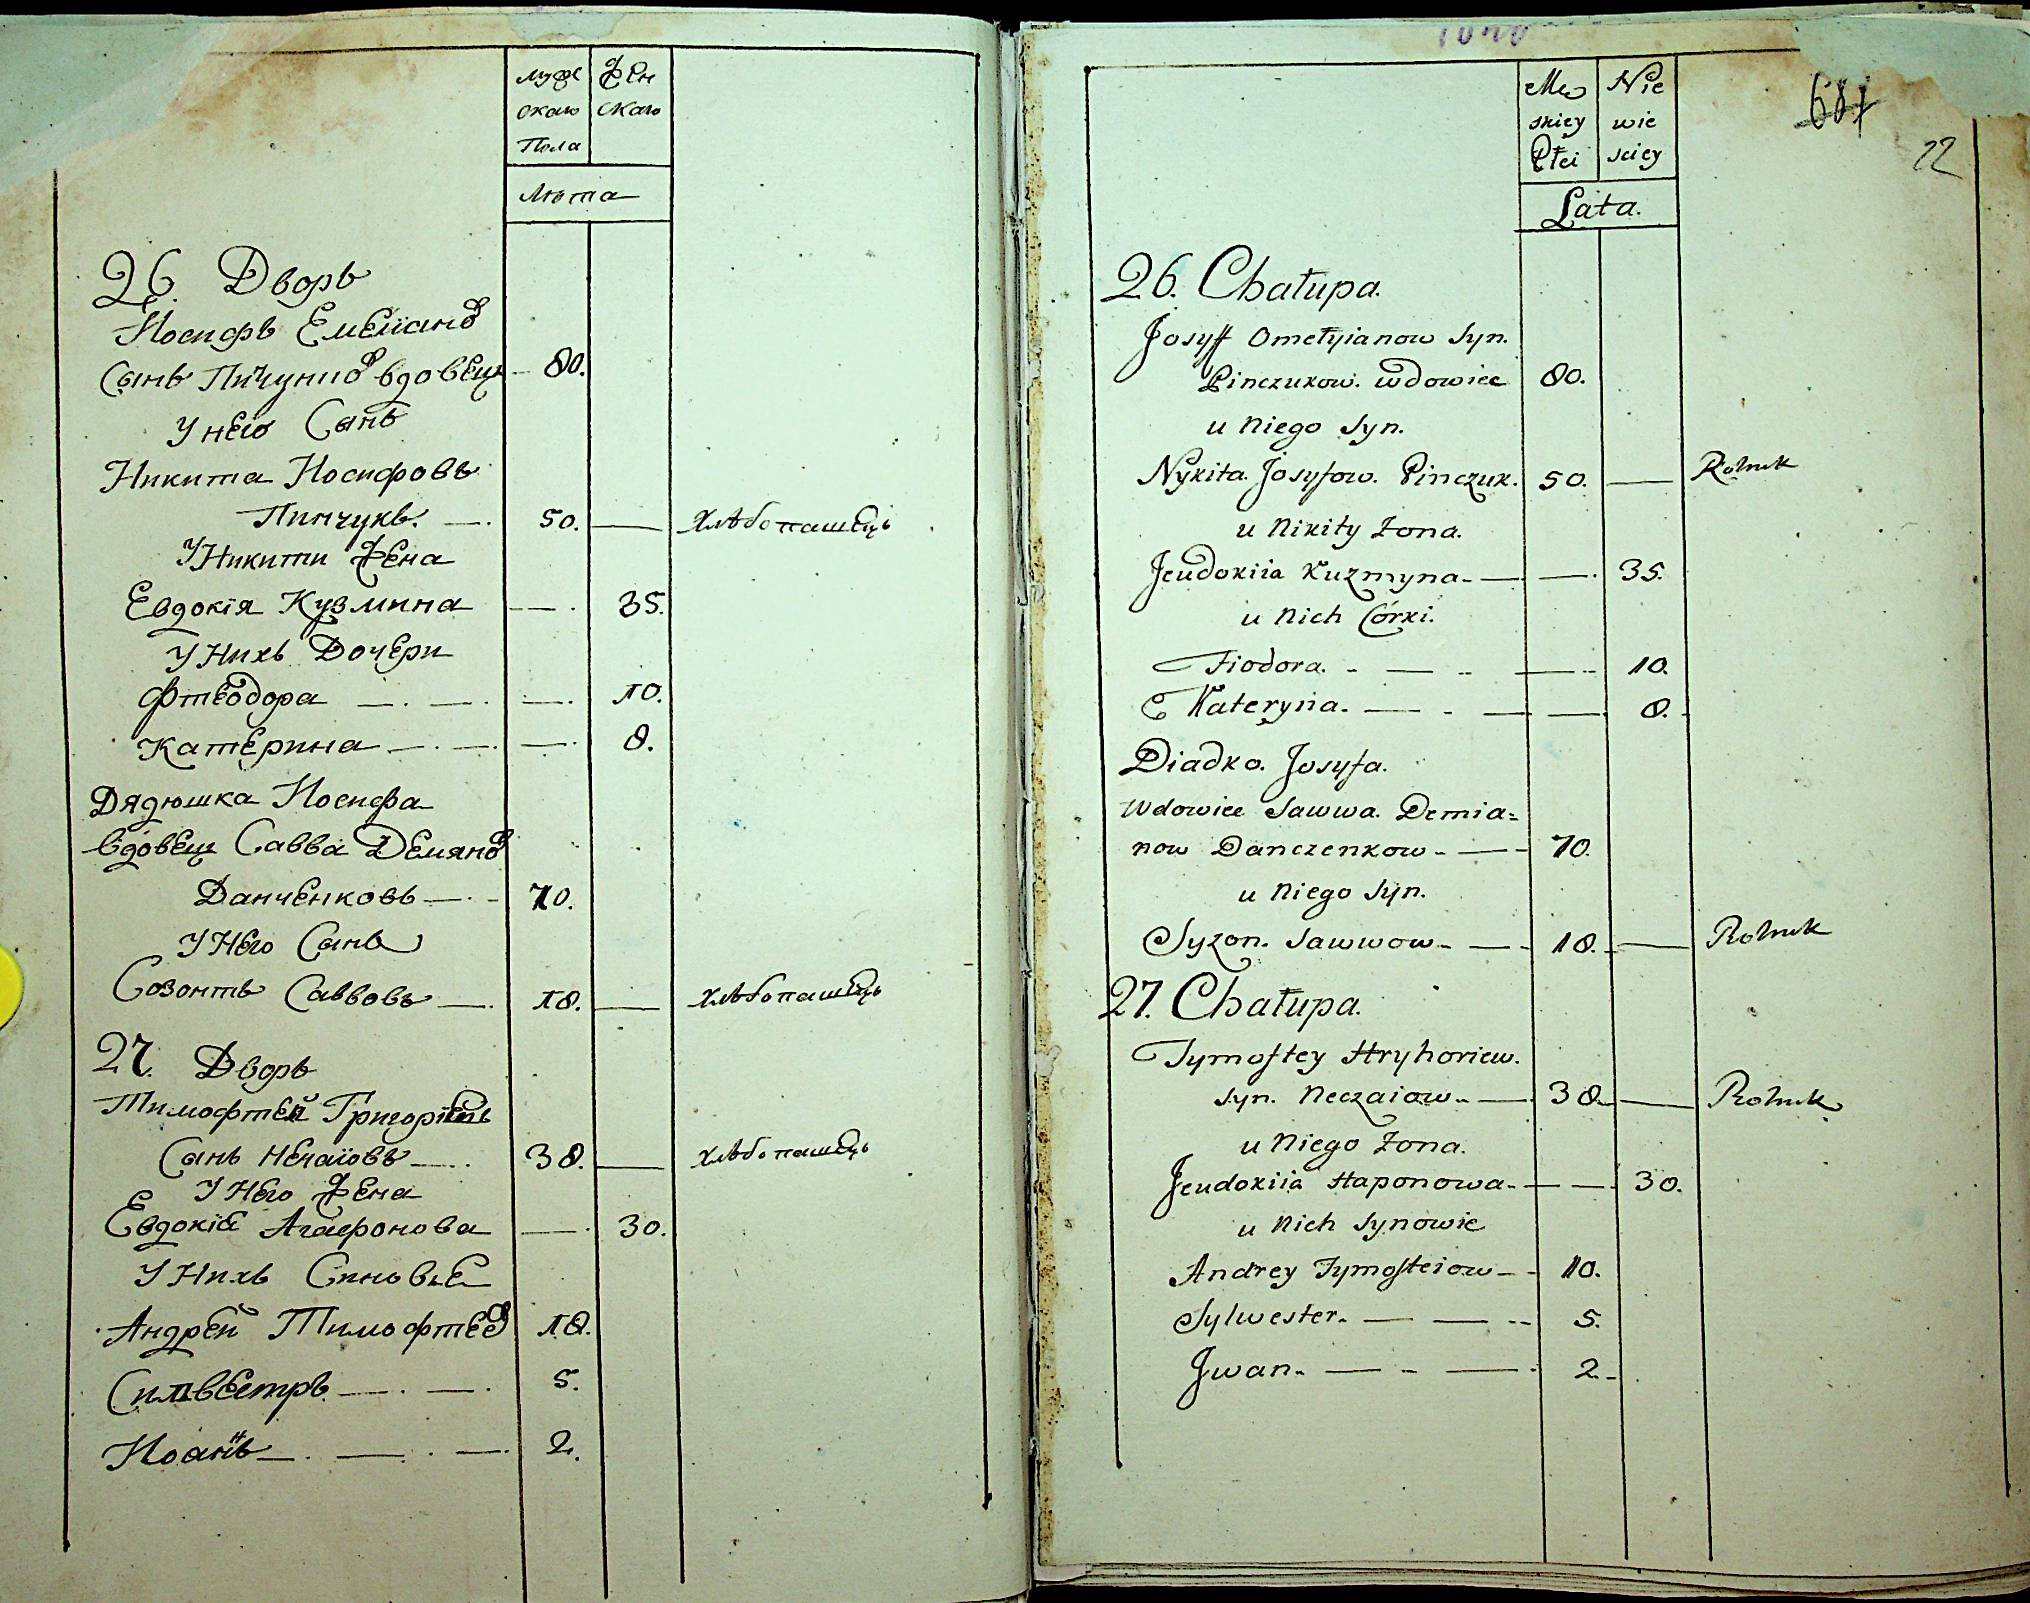 муже Жен
скаго скаго
Пола
Лѣта
26. Дворъ
Иосифъ Емелianовъ
Сынъ Пинчуковъ вдовец 80.
У него Сынъ
Никита Иосифовъ
Пинчукъ. — 50. — Хлѣбопашецъ
У Никити Жена
Евдокія Кузмина — 35.
У Нихъ Дочери
Фтеодора — 10.
Катерина — 8.
Дядюшка Иосифа
вдовец Савва Демяновъ
Данченковъ — 70.
У Него Сынъ
Созонтъ Саввовъ — 18. — Хлѣбопашецъ
27. Дворъ
Тимофтей Григориевъ
Сынъ Нечаiовъ — 38. — Хлѣбопашецъ
У Него Жена
Евдокiя Агафонова — 30.
У Нихъ Синовье
Андрей Тимофтеев 10.
Силвестръ — 5.
Иоаннъ — 2.
Mę Nie
skiey wie
Płci sciey
Lata.
681
22
26. Chałupa.
Josyff Omełyianow Syn.
Pinczukow. wdowiec 80.
u Niego Syn.
Nykita Josyfow. Pinczuk. 50. — Rolnik
u Nikity Zona.
Jeudokiia Kuzmyna — 35.
u Nich Córki.
Fiodora. — 10.
Kateryna. — 8.
Diadko. Josyfa.
Wdowiec Sawwa. Demia=
now Danczenkow — 70.
u Niego Syn.
Syzon. Sawwow — 18. — Rolnik
27. Chałupa.
Tymoftey Hryhoriew.
Syn. Neczaiow — 38. — Rolnik
u Niego Zona.
Jeudokiia Haponowa — 30.
u Nich Synowie
Andrey Tymofteiow — 10.
Sylwester. — 5.
Jwan. — 2.